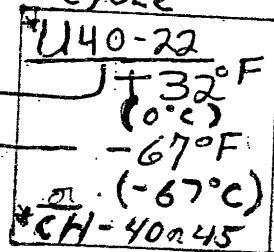 *U40-22
+32°F
(0°C)
-67°F
(-67°C)
or
*CH-40 or 45